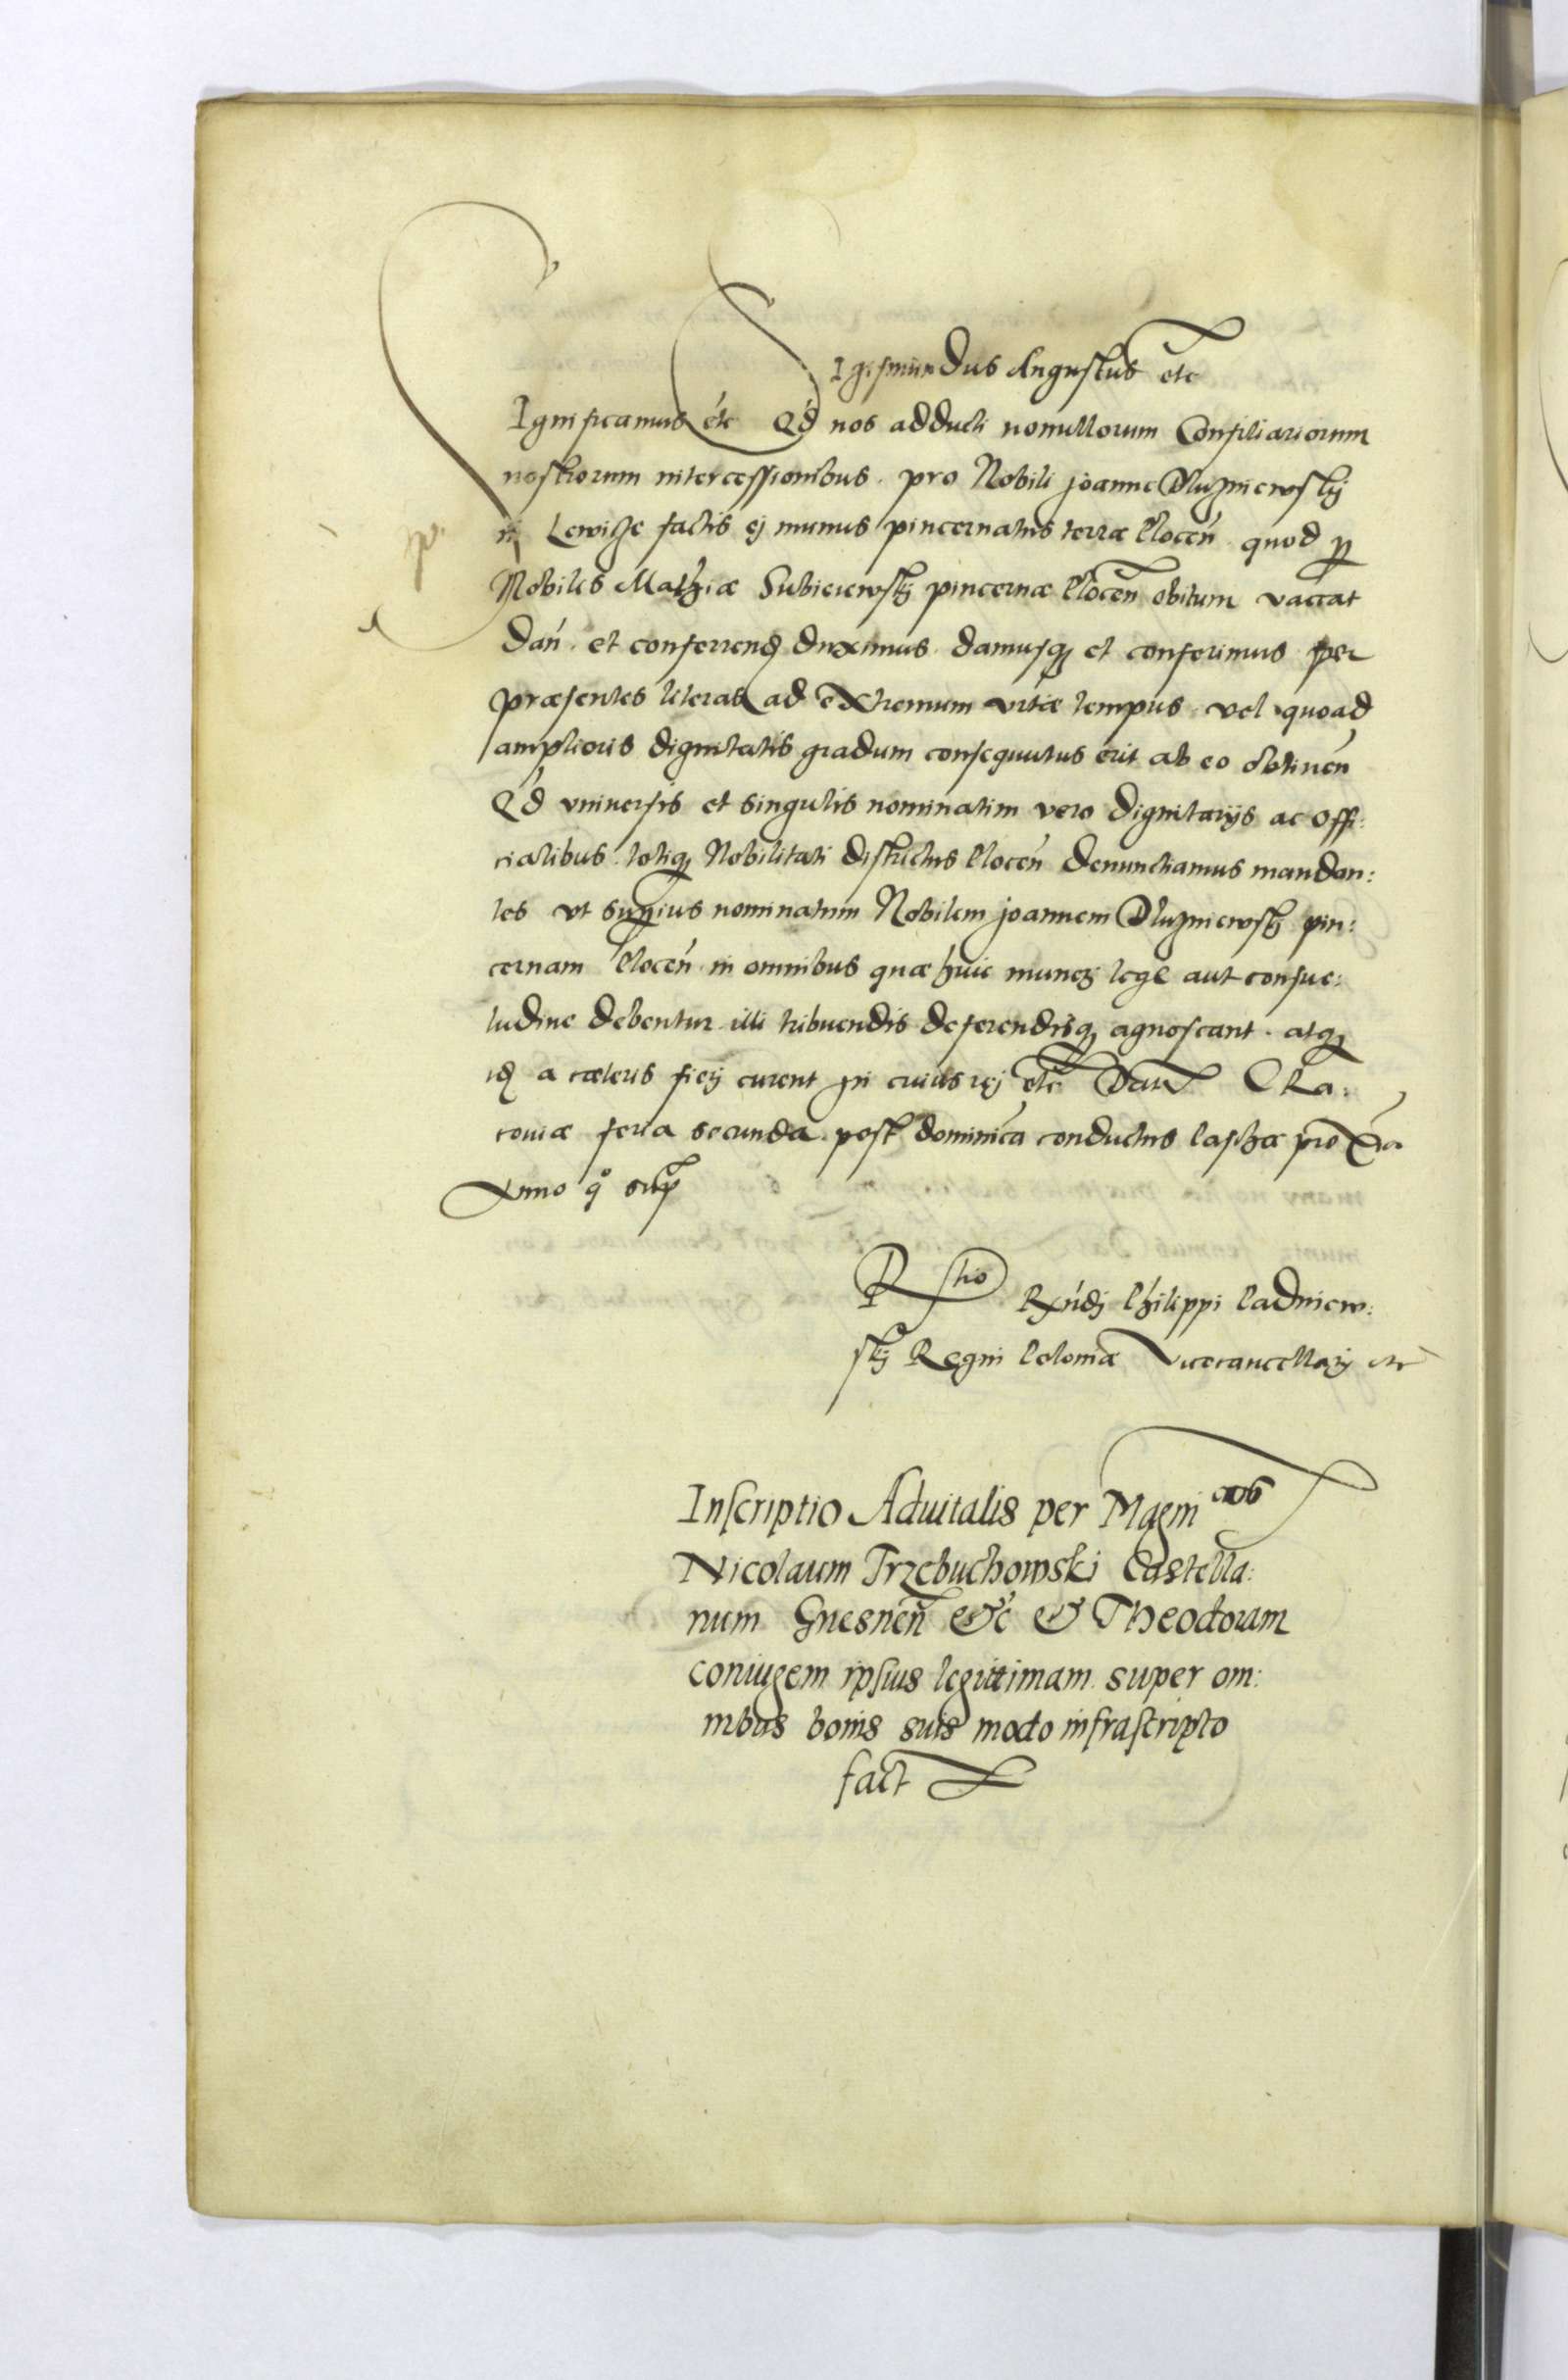 Sigismundus Augustus etc
Significamus etc Qd nos adducti nonullorum Consiliariorum
nostrorum intercessionibus pro Nobili Joanne Dluzniewskij
factis ej munus pincernatus terræ Plocen quod p
Nobilis Mathiæ pincernæ Plocen obitum vaccat
dan et conferrend duximus damusq et conferimus per
præsentes literas ad extremum vitæ tempus vel quoad
amplioris dignitatis gradum consequutus erit ab eo obtinen
Qd vniversis et singulis nominatim vero dignitarijs ac offi:
cialibus totiq Nobilitati districtus Plocen denunctiamus mandan:
tes vt superius nominatum Nobilem Joannem Dluzniewskj pin:
cernam Plocen in omnibus quæ huic munerj lege aut consue:
tudine debentur illi tribuendis deferendisq agnoscant atq
id a cæteris fierj curent In cuius rej etc Dat CRa:
coviæ feria secunda post dominica conductus Paschæ proxia
Anno qo sup
Rstio Rxndj Philippi Padniew:
skj Regni Poloniæ Vicecancellarij etc
Inscriptio Aduitalis per Magni cos
Nicolaum Trzebuchowski Castella:
num Gnesnen &c & Theodoram
coniugem ipsius legittimam super om:
nibus bonis suis modo infrascripto
fact